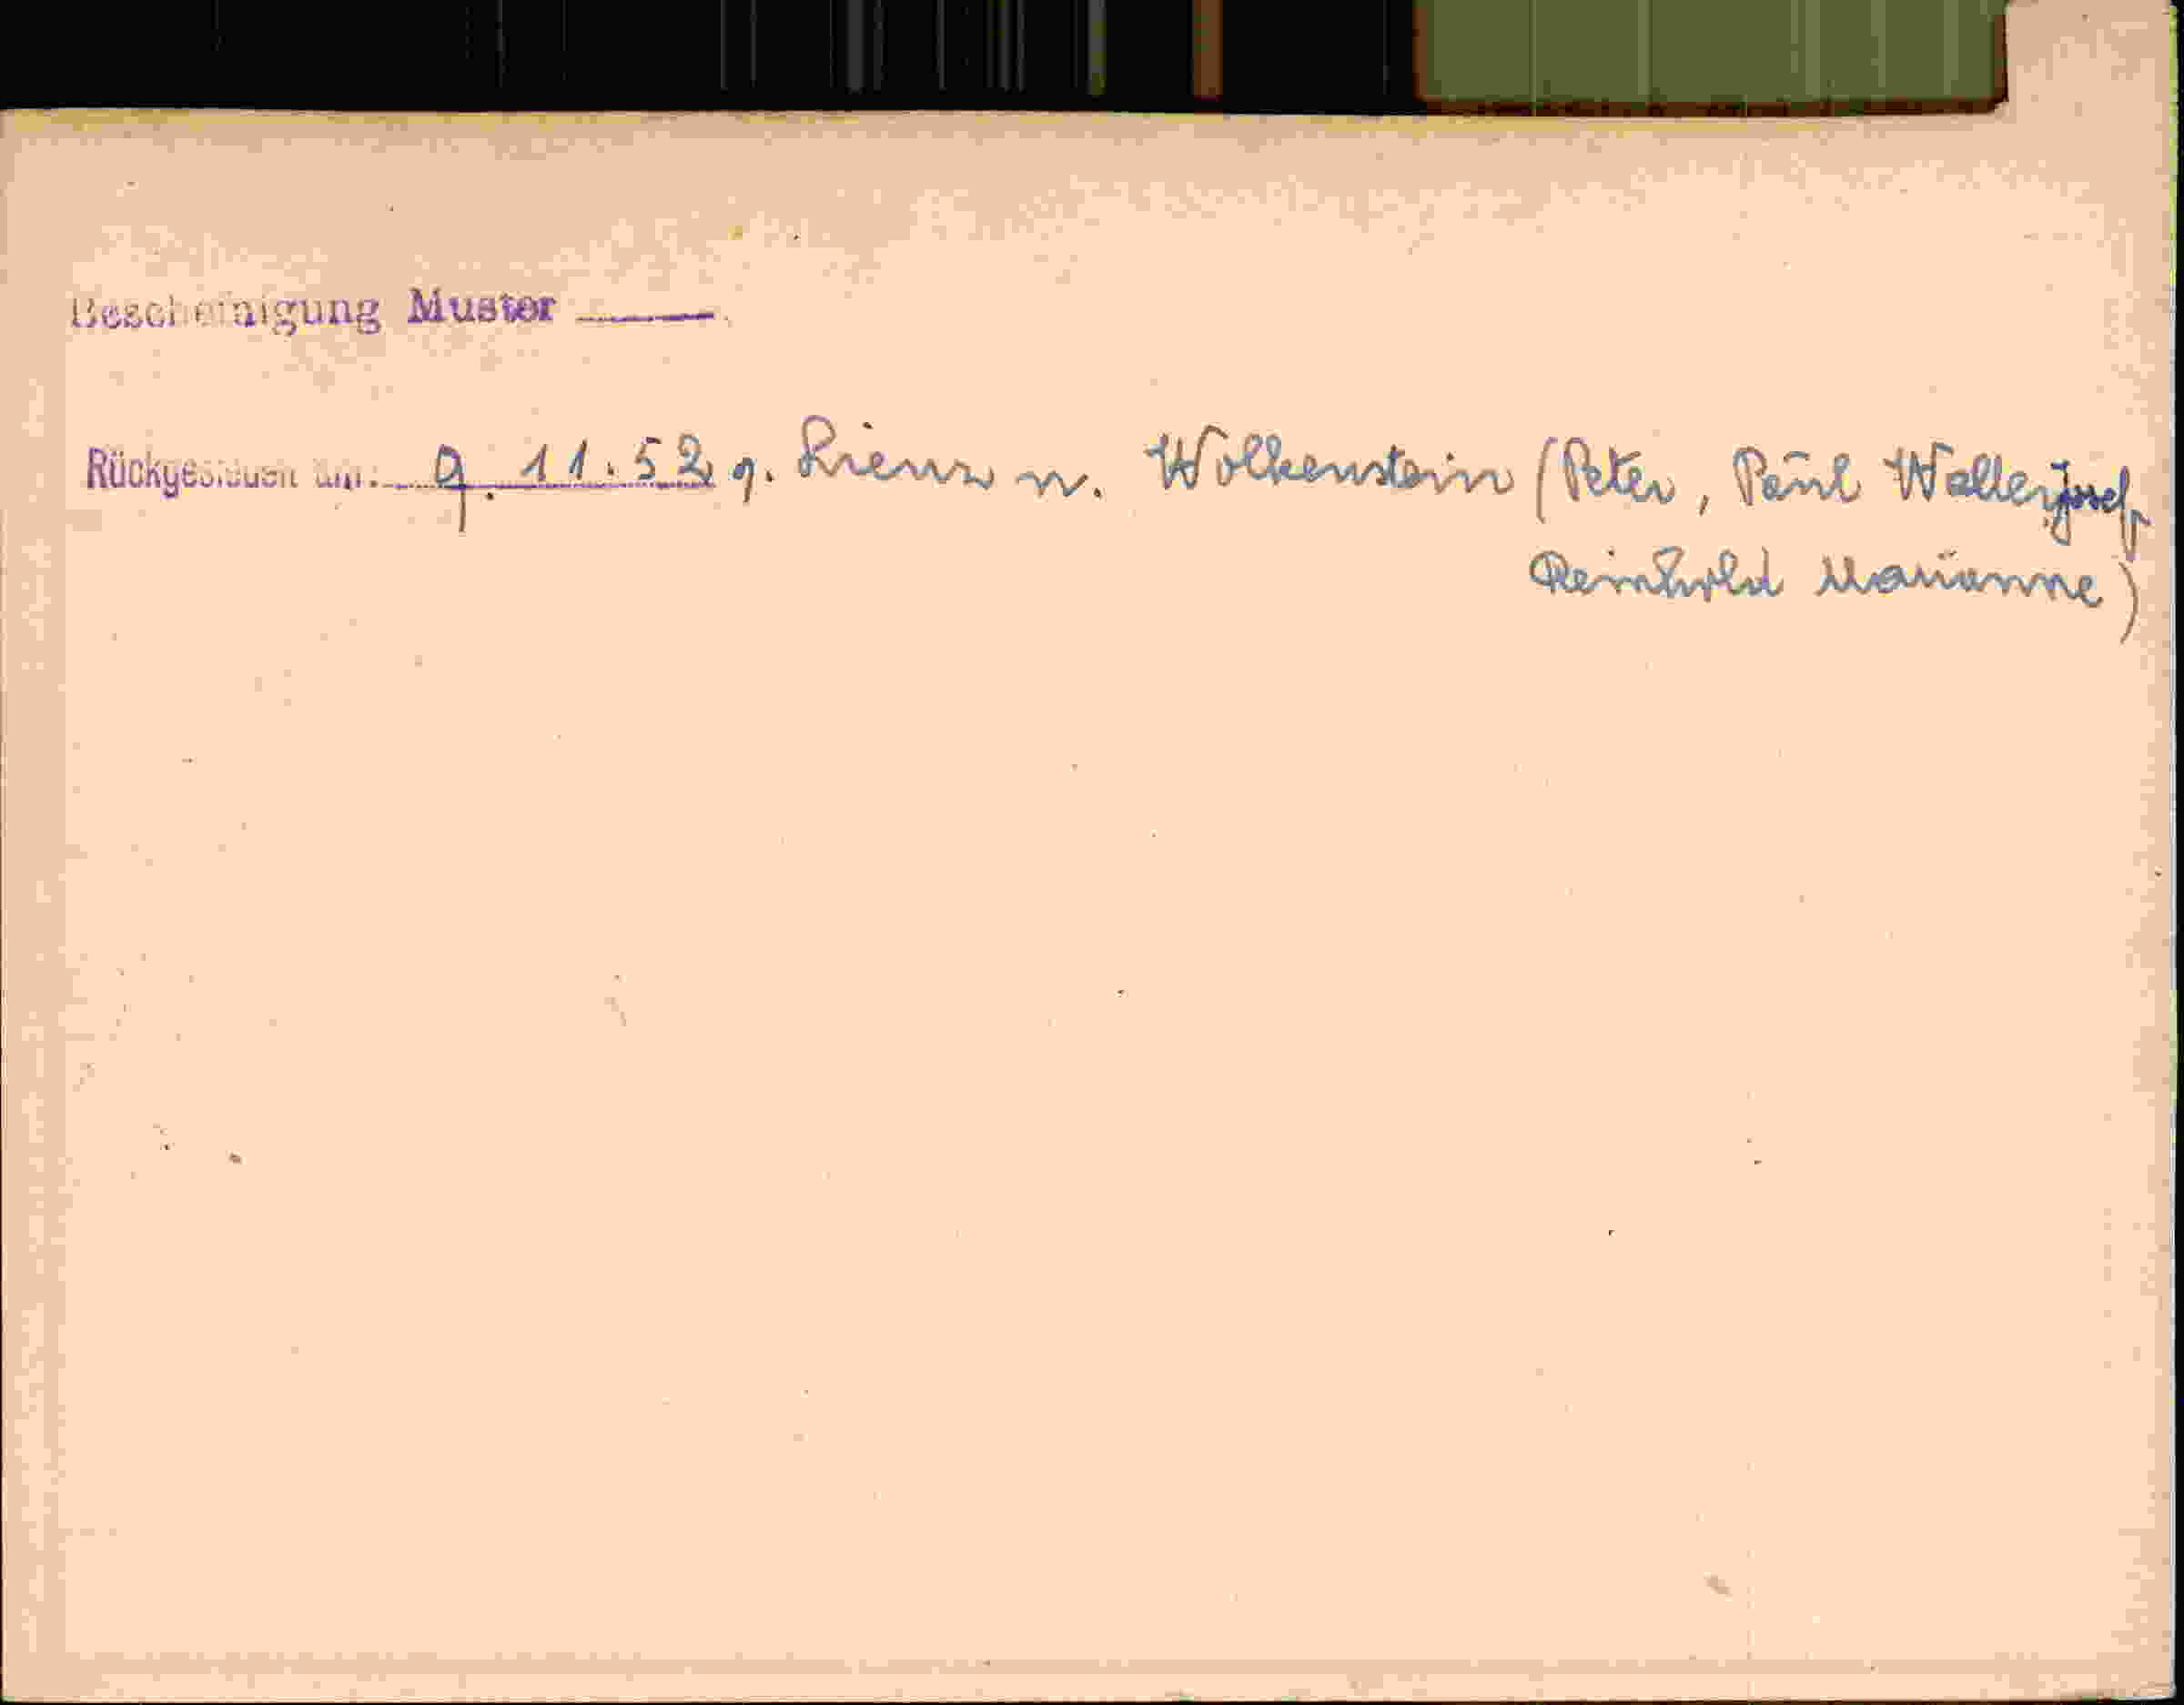 Bescheinigung Muster ______.
Rückgesiedelt am: 9. 11. 52 v. Lienz n. Wolkenstein (Peter, Paul Walter, Josef,
Reinhold Marianne)